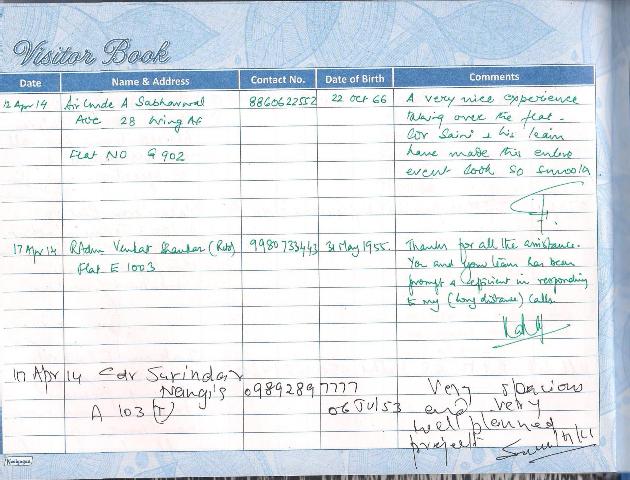 Visitor Book
Date Name & Address Contact No. Date of Birth Comments
12 Apr 14 Air Cmde A Sabharwal 8860622552 22 Oct 66 A very nice experience
AOC 28 Wing AF taking over the flat.
Cdr Saini & his team
Flat NO G 902 have made this entire
event look so smooth
17 Apr 14 RAdm Venkat Shankar (Retd) 9980733443 31 May 1955. Thanks for all the assistance.
Flat E 1003 You and your team has been
prompt & efficient in responding
to my (long distance) calls.
17 Apr 14 Cdr Surinder Very spacious
Nangia 09892897777 and very
A 103 (T) 06 Jul 53 well planned
project